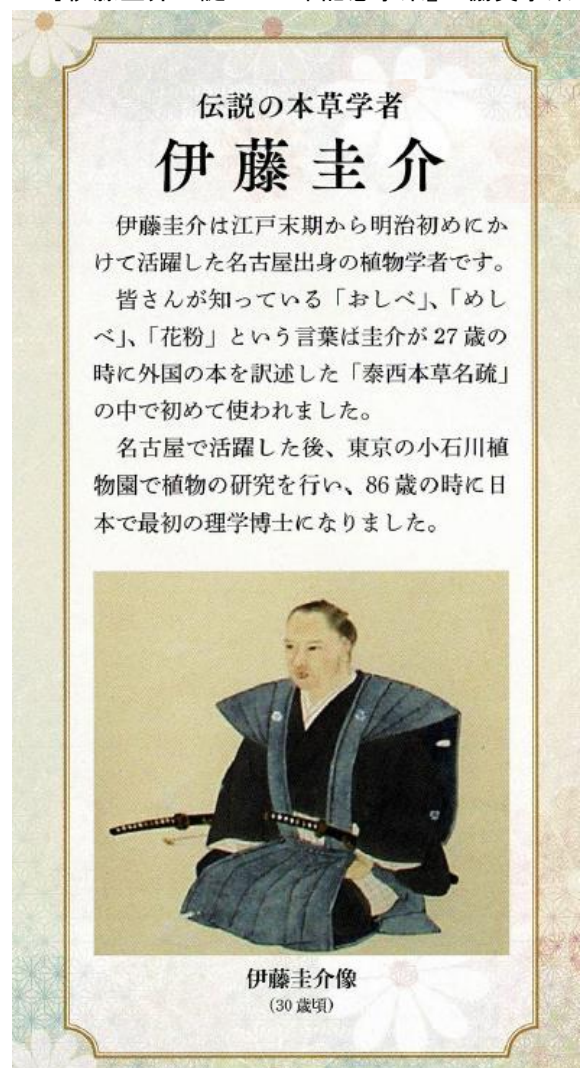 伝説の本草学者
伊藤圭介
　伊藤圭介は江戸末期から明治初めにか
けて活躍した名古屋出身の植物学者です。
　皆さんが知っている「おしべ」、「めし
べ」、「花粉」という言葉は圭介が27歳の
時に外国の本を訳述した「泰西本草名疏」
の中で初めて使われました。
　名古屋で活躍した後、東京の小石川植
物園で植物の研究を行い、86歳の時に日
本で最初の理学博士になりました。
伊藤圭介像
(30歳頃)